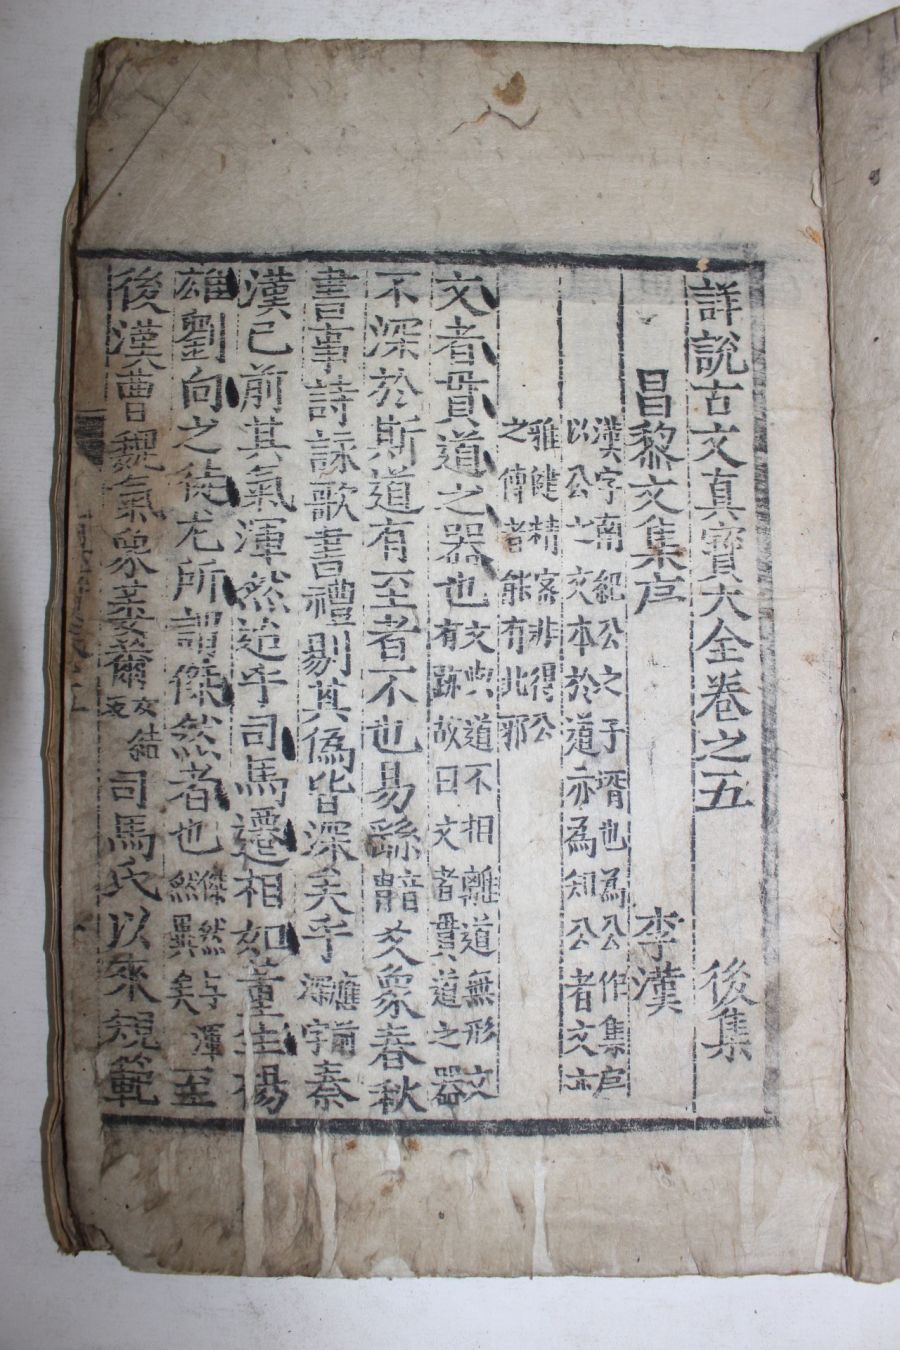 詳說古文眞寶大全卷之五 後集
昌黎文集序 李漢
漢字南紀公之子壻也爲公作集序
以公之文本於道亦爲知公者文亦
雅健精密非得公
之傳者能有此耶
文者貫道之器也文與道不相離道無形文有跡故曰文者貫道之器
不深於斯道有至者不也易繇爻象春秋
書事詩詠歌書禮剔其僞皆深矣乎秦
漢已前其氣渾然迨乎司馬遷相如董生揚
雄劉向之徒尤所謂傑然者也傑然與渾然異矣至
後漢曹魏氣象萎薾司馬氏以來規範